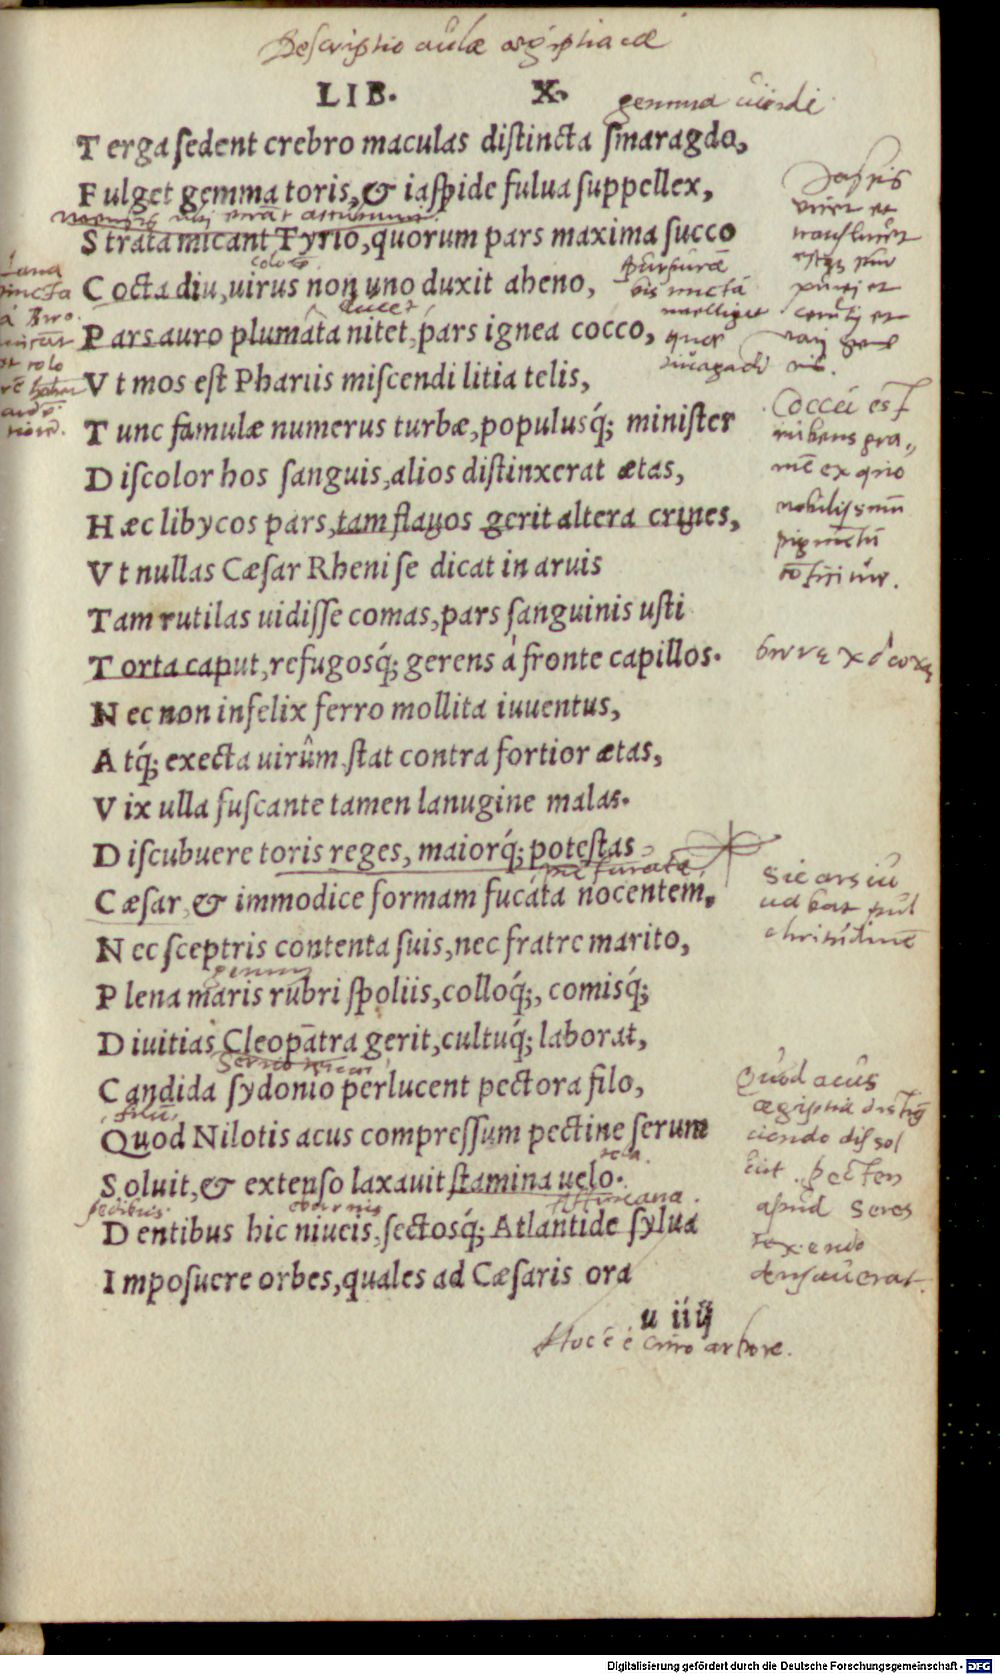 Descriptio aulæ ægiptiacæ
LIB. X.
gemma uiridi
T erga sedent crebro maculas distincta smaragdo,
F ulget gemma toris, & iaspide fulua suppellex,
S trata micant Tyrio, quorum pars maxima succo
C octa diu, uirus non uno duxit aheno,
P ars auro plumâta nitet, pars ignea cocco,
V t mos est Phariis miscendi litia telis,
T unc famulæ numerus turbæ, populusq́; minister
D iscolor hos sanguis, alios distinxerat ætas,
H æc libycos pars, tam flauos gerit altera crines,
V t nullas Cæsar Rheni se dicat in aruis
T am rutilas uidisse comas, pars sanguinis usti
T orta caput, refugosq́; gerens à fronte capillos.
N ec non infelix ferro mollita iuuentus,
A tq́; execta uirûm stat contra fortior ætas,
V ix ulla fuscante tamen lanugine malas.
D iscubuere toris reges, maiorq́; potestas
C æsar, & immodice formam fucáta nocentem,
N ec sceptris contenta suis, nec fratre marito,
P lena maris rubri spoliis, colloq́;, comisq́;
D iuitias Cleopatra gerit, cultuq́; laborat,
C andida sydonio perlucent pectora filo,
Quod Nilotis acus compressum pectine serum
S oluit, & extenso laxauit stamina uelo.
D entibus hic niueis, sectosq́; Atlantide sylua
I mposuere orbes, quales ad Cæsaris ora
u iiij
Iaspis
uiret et
Coccū est
rubens gra„
mē ex quo
nobilissimū
Sic ars iu
uabat pul
chritudinē
Quod acus
ægiptia distīg
uendo dissol
uit. pecten
apud Seres
texendo
densauerat.
Hoc ē ē citro arbore.